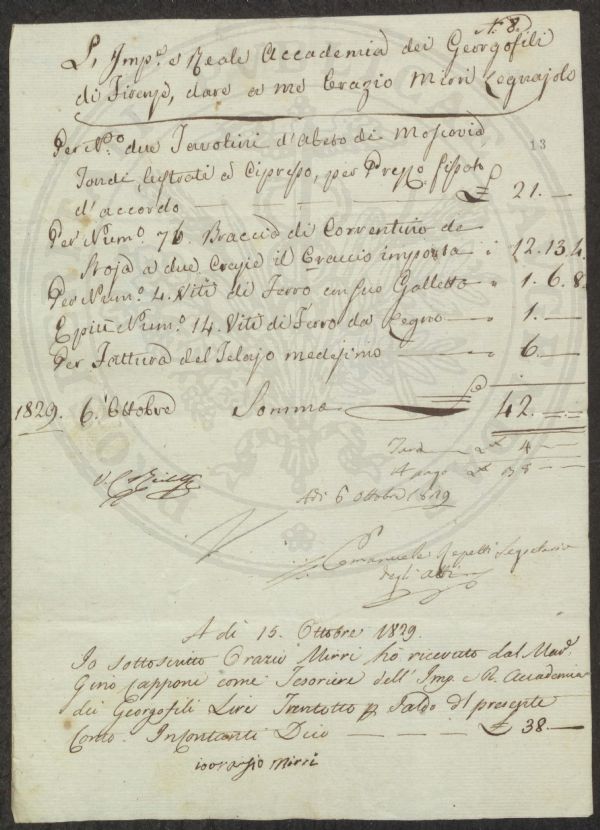 N.° 8.
L'Imp.e e Reale Accademia dei Georgofili
di Firenze, dare a me Orazio Mirri Legnajolo
13
Per N.° due Tavolini d'Abeto di Moscovia
Tondi, lustrati a Cipresso, per Prezzo fissato
d'accordo — £ 21. —
Per Num.° 76. Braccia di Correntino da
Stoja a due Crazie il Braccio importa " 12.13.4.
Per Num.° 4. Viti di Ferro con sue Gallette " 1.6.8.
E più Num.° 14. Viti di Ferro da Legno — " 1. —
Per Fattura del Telajo medesimo — " 6. —
1829. 6. Ottobre Somma £ 42. —
Tara — 4 —
A pago 38 —
Adi 6 Ottobre 1829
V.
Emanuele Repetti Segretario
degli Atti
A di 15. Ottobre 1829.
Io sottoscritto Orazio Mirri ho ricevuto dal Mar.
Gino Capponi come Tesoriere dell'Imp. e R. Accademia
dei Georgofili Lire Trentotto p Saldo d'l presente
Conto. In contanti Dico — £ 38. —
io orazio Mirri